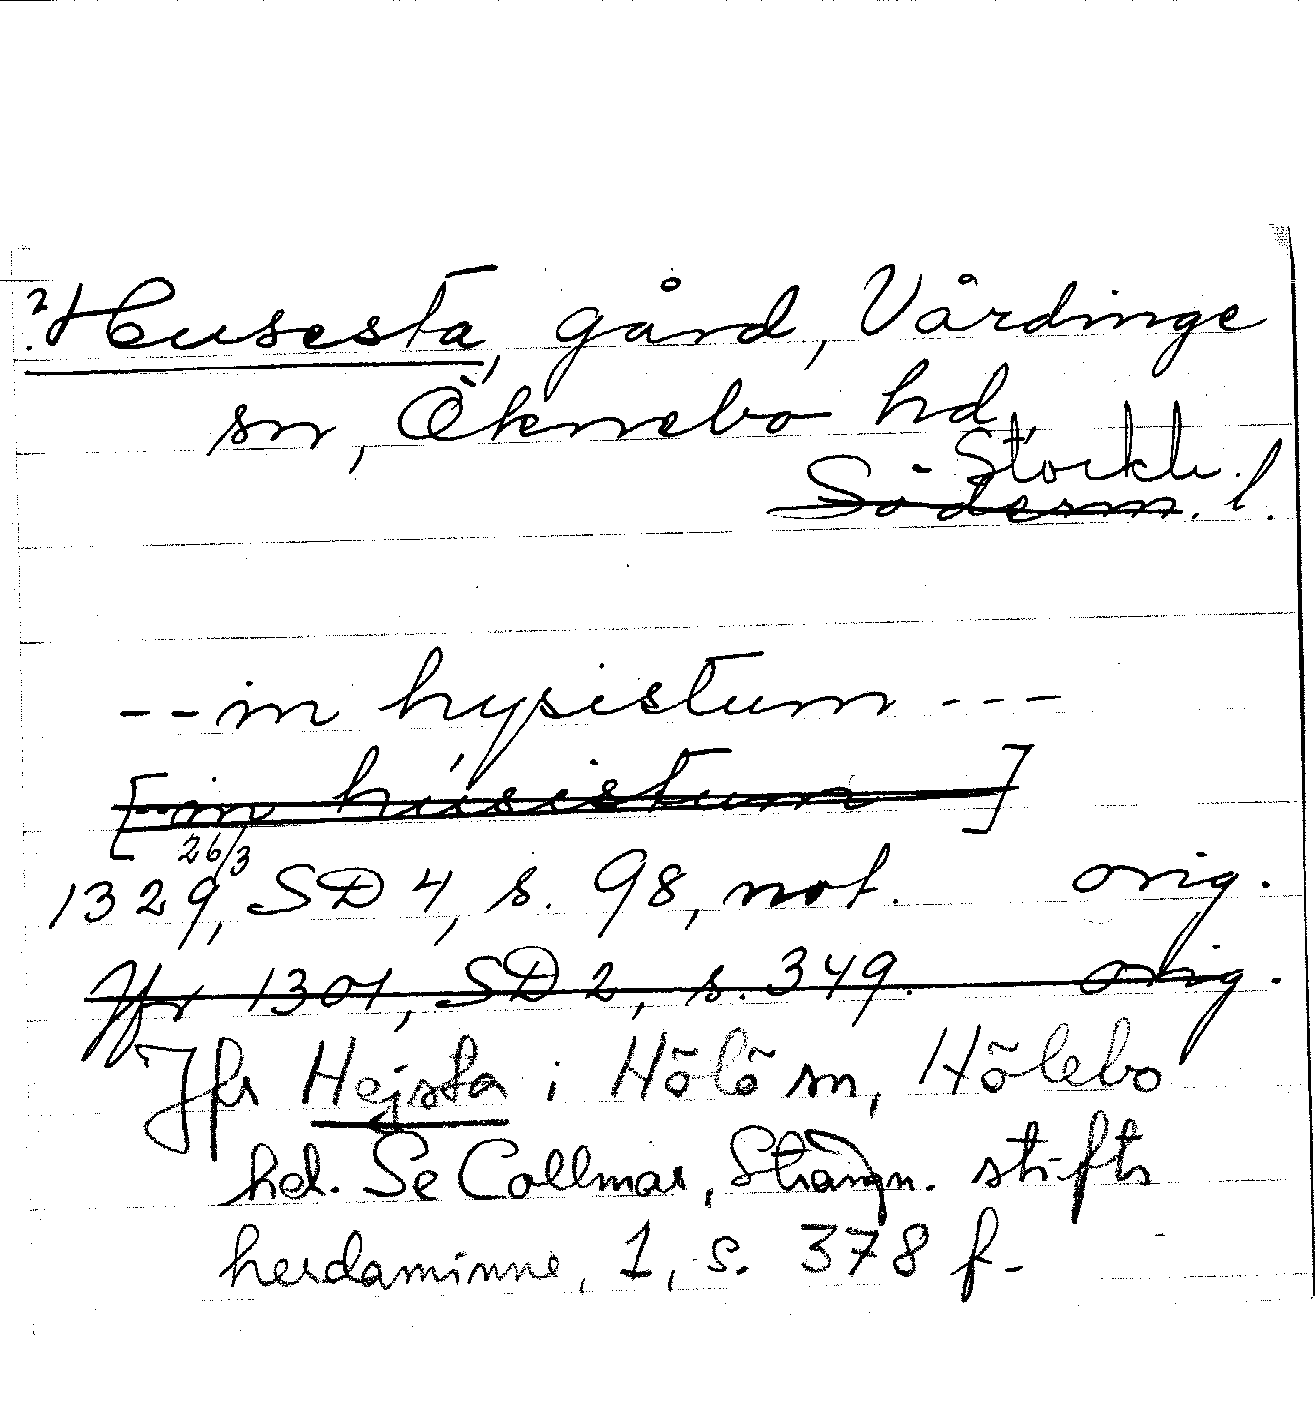 ? Husesta, gård, Vårdinge
sn, Öknebo hd,
Stockh.
Söderm. l.
--in hysistum ---
[-in húsistum ]
26/3
1329, SD 4, s. 98, not. orig.
Jfr 1301, SD 2, s. 349. orig.
Jfr Hejsta i Hölö sn, Hölebo
hd. Se Collmar, Strängn. stifts
herdaminne, 1, s. 378 f.